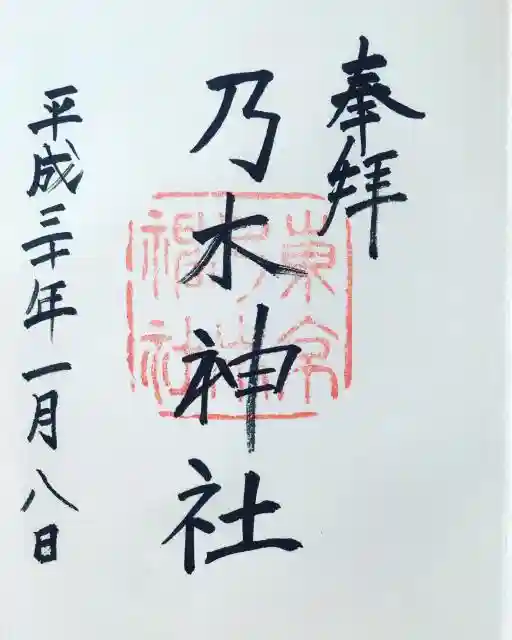 奉拝
乃木神社
平成三十年一月八日
東京
乃木
神社